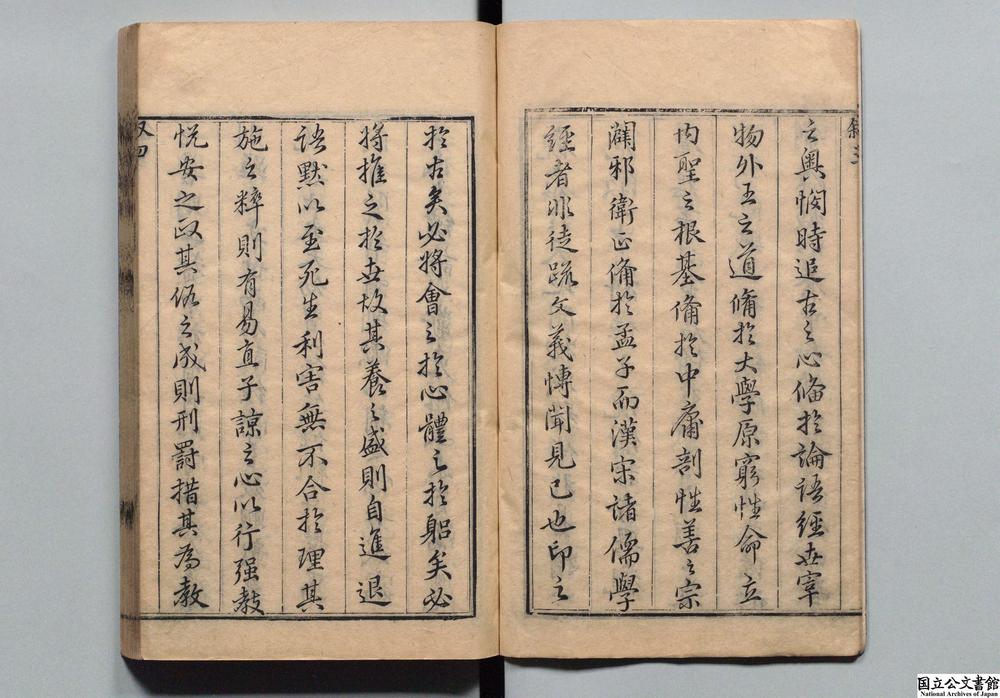 之奧憫時追古之心備於論語經世宰
物外王之道備於大學原窮性命立
內聖之根基備於中庸剖性善之宗
闢邪衛正備於孟子而漢宋諸儒學
經者非徒疏文義慱聞見已也印之
於古矣必將會之於心體之於躬矣必
將推之於世故其養之盛則自進退
語默以至死生利害無不合於理其
施之粹則有易直子諒之心以行强敎
悅安之政其俗之成則刑罰措其為教
敘三
叙四
国立公文書館
National Archives of Japan